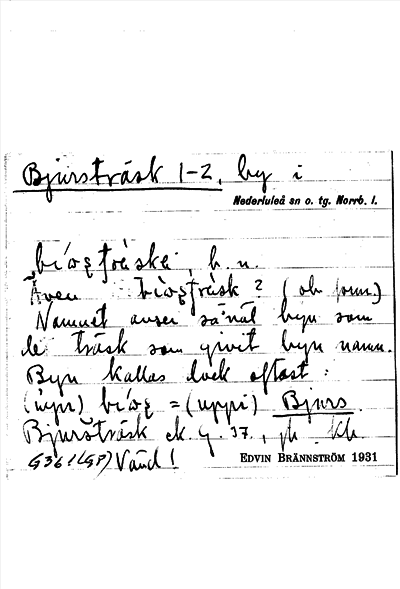 Bjursträsk 1-2, by i
Nederluleå sn o. tg. Norrb. l.
b. n.
Även 2 (ob form.)
Namnet avser såväl byn som
de träsk som givit byn namn.
Byn kallas dock oftast :
= (uppi) Bjurs.
Bjursträsk ek. g. 37., jb. Kb.
G36 l (GP) Vänd!
EDVIN BRÄNNSTRÖM 1931